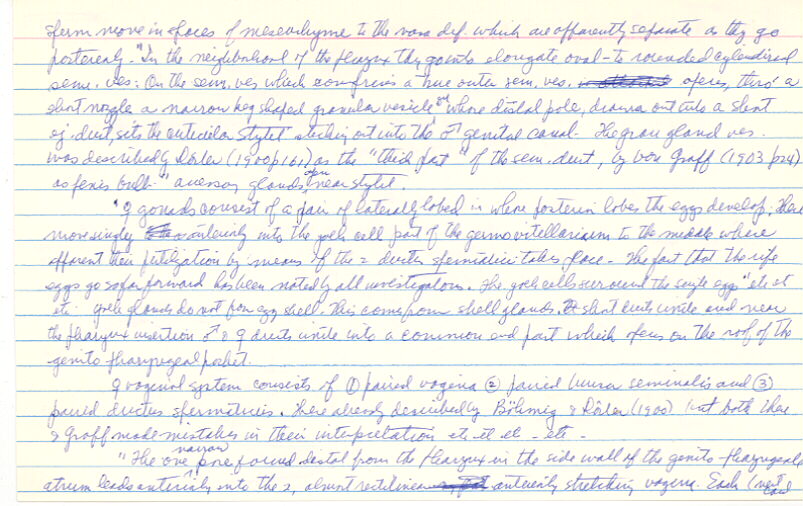 sperm move in spaces of mesenchyme to the vasa def. which are apparently separate as they go
posterenly. "In the neighborhood of the pharynx they go into elongate oval - to rounded cylindrical
sem. ves. On the sem. ves which comprises a true outer sem. ves. opens, thro' a
short nozzle a narrow keg shaped granular vesicle whose distal pole, drawn out into a short
ej. duct, sits the cuticular stylet sticking out into the ♂ genital canal. The gran gland ves.
was described by Dörler (1900 p 161) as the "thick part" of the sem. duct, by von Graff (1903 p 24)
as penis bulb." accessory glands open near stylet.
"♀ gonads consist of a pair of laterally lobed in whose posterior lobes the eggs develop; these
move singly anteriorly into the yolk cell part of the germovitellarium to the middle where
apparent their fertilization by means of the 2 ductus spermatici takes place. The fact that the ripe
eggs go so far forward has been noted by all investigators. The yolk cells surround the single eggs" etc et
etc yolk glands do not form egg shell. This comes from shell glands. short ducts unite and near
the pharynx insertion ♂ & ♀ ducts unite into a common end part which opens on the roof of the
genito pharyngeal pocket.
♀ vaginal system consists of ① paired vagina ② paired bursa seminalis and ③
paired ductus spermaticus. These already described by Böhmig & Dörler (1900) but both these
& Graff made mistakes in their interpretation etc et etc - etc -
"The one narrow pore found distal from the pharynx in the side wall of the genito-pharyngeal
atrium leads anteriorly into the 2, almost rectilinear anteriorly stretching vagina. Each (next card